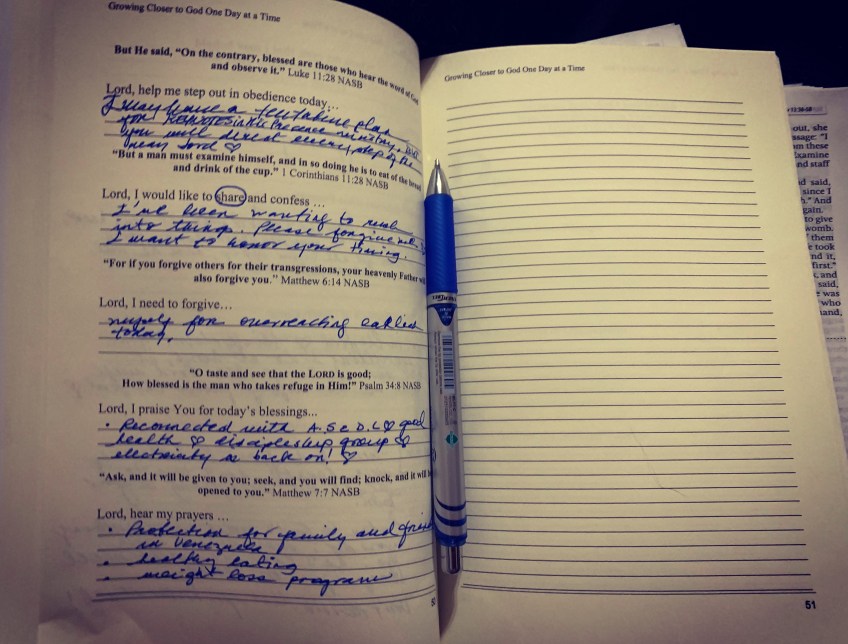 Growing Closer to God One Day at a Time
But He said, "On the contrary, blessed are those who hear the word of God
and observe it." Luke 11:28 NASB
Lord, help me step out in obedience today…
I may have a tentative plan
for KEYNOTES in His Presence ministry, but
you will direct every step of the
way Lord ♡
"But a man must examine himself, and in so doing he is to eat of the bread
and drink of the cup." 1 Corinthians 11:28 NASB
Lord, I would like to share and confess …
I've been wanting to rush
into things. Please forgive me.
I want to honor your timing.
"For if you forgive others for their transgressions, your heavenly Father will
also forgive you." Matthew 6:14 NASB
Lord, I need to forgive…
myself for overreacting earlier
today.
"O taste and see that the LORD is good;
How blessed is the man who takes refuge in Him!" Psalm 34:8 NASB
Lord, I praise You for today's blessings...
• Reconnected with A.S & D.L ♡ good
health ♡ discipleship group ♡
electricity is back on! ♡
"Ask, and it will be given to you; seek, and you will find; knock, and it will be
opened to you." Matthew 7:7 NASB
Lord, hear my prayers …
• Protection for family and friends
in Venezuela
• healthy eating
• weight loss program
Growing Closer to God One Day at a Time
51
out, she
ssage: "I
om these
Examine
nd staff
id said,
since I
." And
gain.
to give
womb.
them
e took
nd it,
first."
k, and
said,
e was
who
hand,